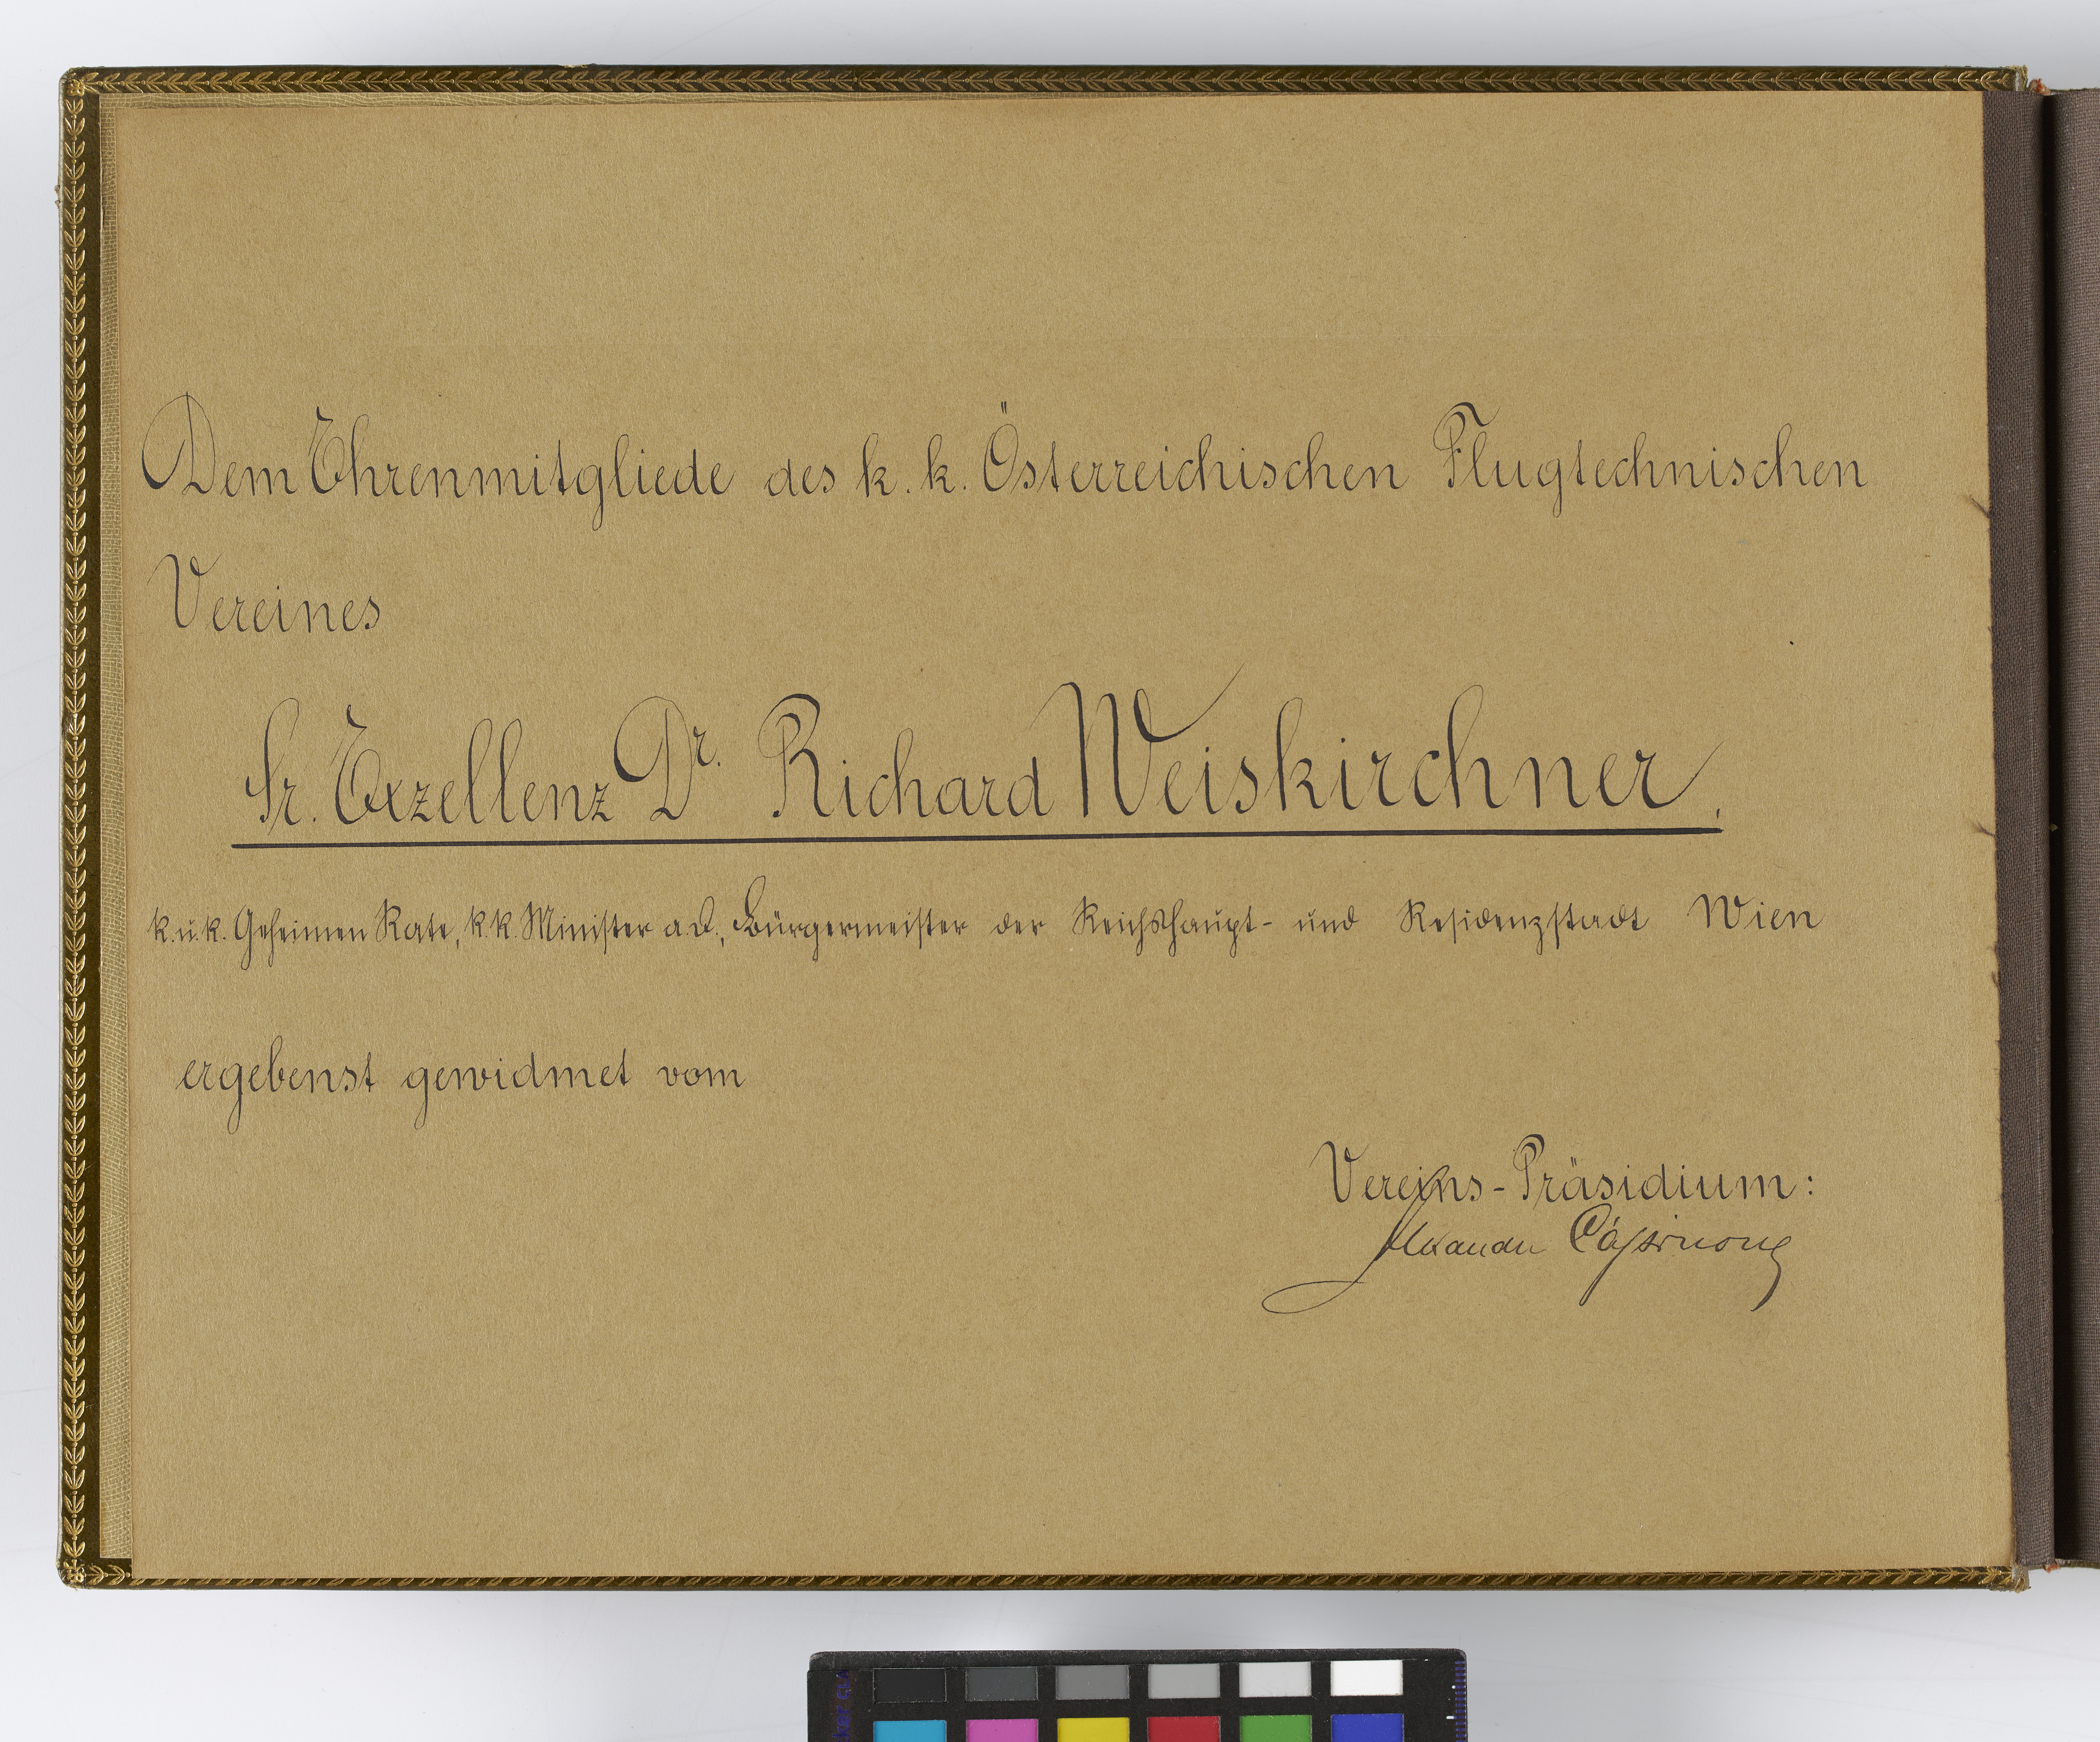 Dem Ehrenmitgliede des k. k. Österreichischen Flugtechnischen
Vereines
Sr. Exzellenz Dr. Richard Weiskirchner.
k. u. k. Geheimen Rate, k. k. Minister a. D., Bürgermeister der Reichshaupt- und Residenzstadt Wien
ergebenst gewidmet vom
Vereins-Präsidium:
Alexander